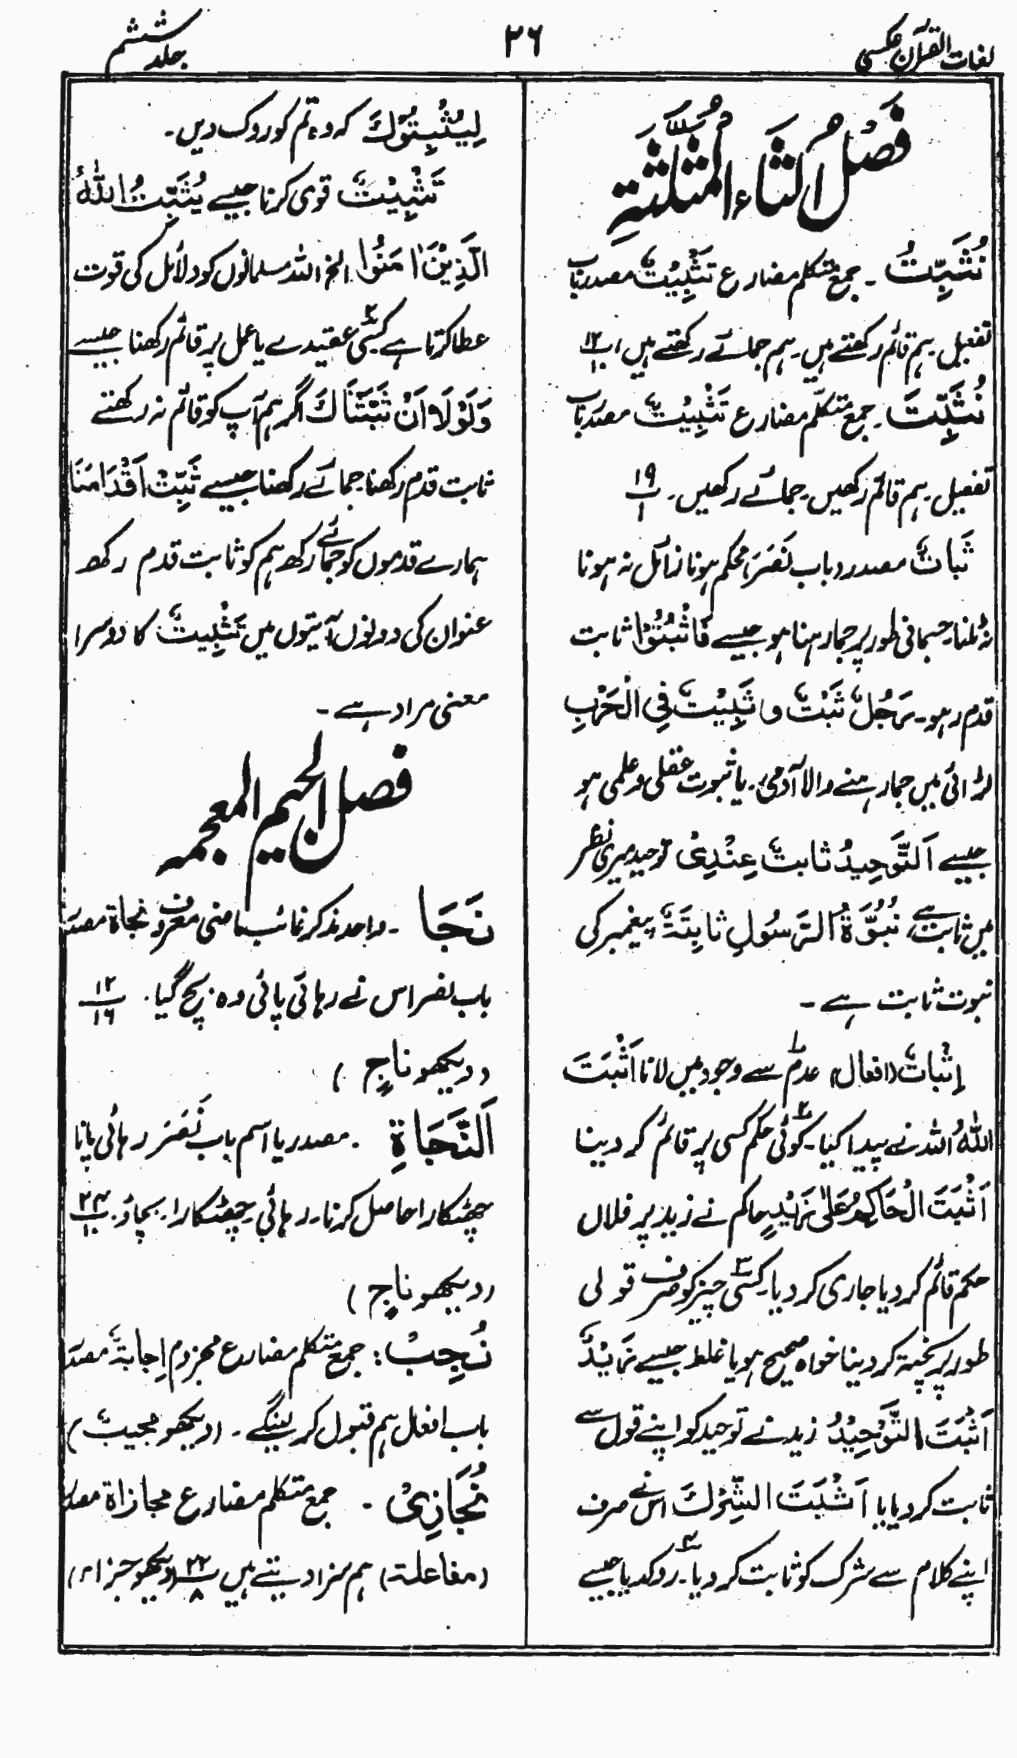 لغات القرآن عکسی
۲۶
جلد ششم
فَصْلُ الثَّاءِ الْمُثَلَّثَةِ
نُثَبِّتُ ۔ جمع متکلم مضارع تَثْبِيْتٌ مصدر باب
تفعیل ۔ ہم قائم رکھتے ہیں ۔ ہم جمائے رکھتے ہیں
نُثَبِّتَ ۔ جمع متکلم مضارع تَثْبِيْتٌ مصدر باب
تفعیل ۔ ہم قائم رکھیں ۔ جمائے رکھیں ۔ ۱۹/۱
ثَبَاتٌ مصدر (باب نَصَرَ) محکم ہونا زائل نہ ہونا
نہ ٹلنا ۔ جسمانی طور پر جما رہنا ہو جیسے فَاثْبُتُوْا ثابت
قدم رہو ۔ رَجُلٌ ثَبْتٌ و ثَبِيْتٌ فِی الْحَرْبِ
لڑائی میں جما رہنے والا آدمی ۔ یا ثبوت عقلی و علمی ہو
جیسے اَلتَّوْحِيْدُ ثابتٌ عِنْدِیْ توحید میری نظر
میں ثابت ہے نُبُوَّةُ الرَّسُولِ ثابِتَةٌ پیغمبر کی
نبوت ثابت ہے ۔
اِثْبَاتٌ (افعال) ۱ عدم سے وجود میں لانا اَثْبَتَ
اللهُ اللہ نے پیدا کیا ۔ ۲ کوئی حکم کسی پر قائم کر دینا
اَثْبَتَ الْحَاکِمُ عَلٰی زَيْدٍ حاکم نے زید پر فلاں
حکم قائم کر دیا جاری کر دیا ۔ ۳ کسی چیز کو صرف قولی
طور پر پختہ کر دینا خواہ صحیح ہو یا غلط جیسے زَيْدٌ
اَثْبَتَ التَّوْحِيْدُ زید نے توحید کو اپنے قول سے
ثابت کر دیا یا اَثْبَتَ الشِّرْكَ اس نے صرف
اپنے کلام سے شرک کو ثابت کر دیا ۔ ۴ روکدیا جیسے
لِيُثْبِتُوْكَ کہ وہ تم کو روک دیں ۔
تَثْبِيْتٌ قوی کرنا جیسے يُثَبِّتُ اللهُ
الَّذِيْنَ اٰمَنُوْا الخ اللہ مسلمانوں کو دلائل کی قوت
عطا کرتا ہے ۲ کسی عقیدے یا عمل پر قائم رکھنا جیسے
وَلَوْلَا اَنْ ثَبَّتْنَاكَ اگر ہم آپ کو قائم نہ رکھتے
ثابت قدم رکھنا جمائے رکھنا جیسے ثَبِّتْ اَقْدَامَنَا
ہمارے قدموں کو جمائے رکھ ہم کو ثابت قدم رکھ
عنوان کی دونوں آیتوں میں تَثْبِيتٌ کا دوسرا
معنی مراد ہے ۔
فصل الجیم المعجمہ
نَجَا ۔ واحد مذکر غائب ماضی معروف نجاۃ مصدر
باب نصر اس نے رہائی پائی وہ بچ گیا ۔ ۱۲/۱۶
(دیکھو ناجٍ)
اَلنَّجَاةِ ۔ مصدر یا اسم باب نَصَرَ رہائی پانا
چھٹکارا حاصل کرنا ۔ رہائی ۔ چھٹکارا ۔ بچاؤ ۔ ۲۴/۱۰
(دیکھو ناجٍ)
نُجِبْ: جمع متکلم مضارع مجزوم اِجابۃٌ مصدر
باب افعال ہم قبول کر لینگے ۔ (دیکھو مجیبٌ)
نُجَازِیْ ۔ جمع متکلم مضارع مجازاۃ مصدر
(مفاعلۃ) ہم سزا دیتے ہیں ۲۲/۸ (دیکھو جزاء)